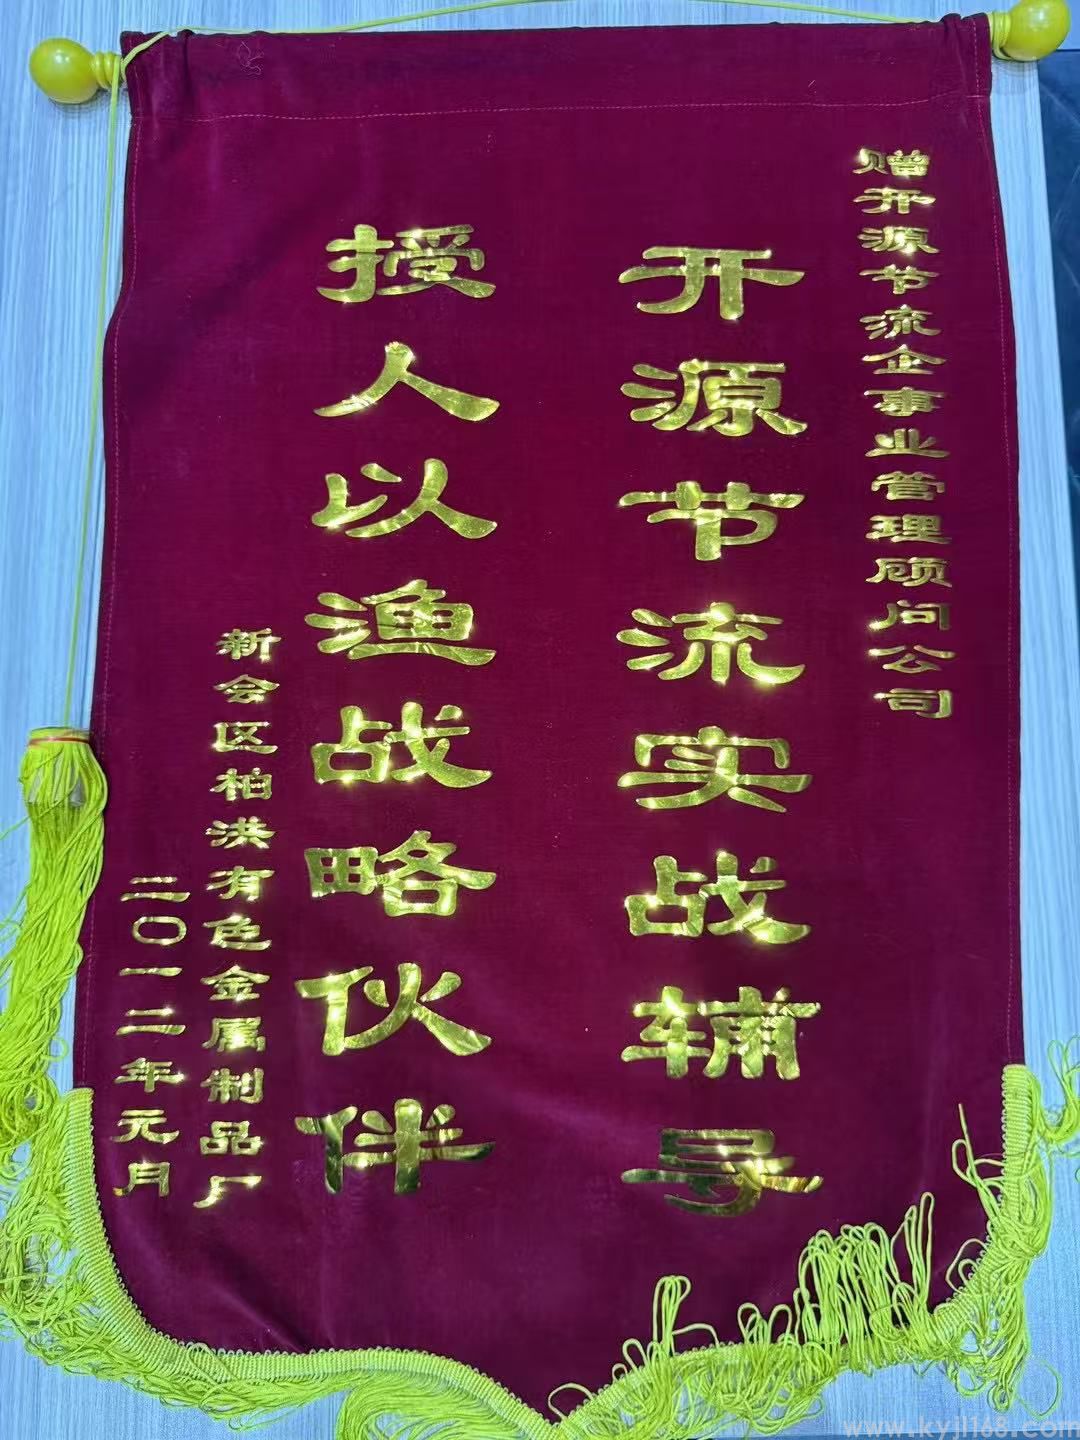 赠开源节流企事业管理顾问公司
开源节流实战辅导
授人以渔战略伙伴
新会区柏洪有色金属制品厂
二〇一二年元月
www.kyjl168.com